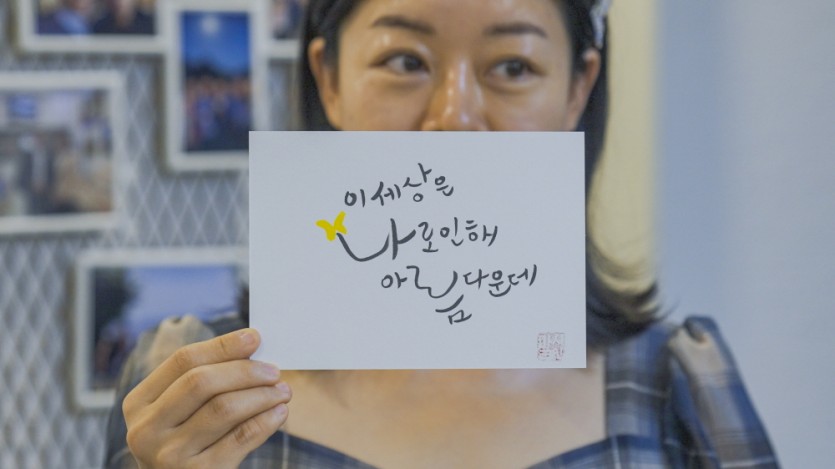 이 세상은
나로 인해
아름다운데